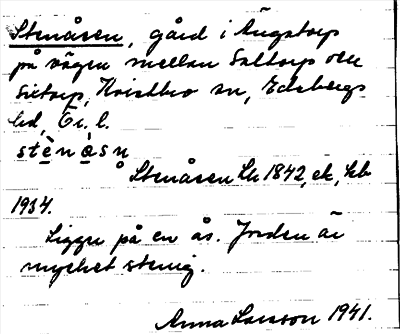 Stenåsen, gård i Ängstorp
på vägen mellan Saltorp och
Sittorp, Kvistbro sn, Edsbergs
hd, Ör. l.
stènåsn
Stenåsen Lk 1842, ek, kb
1934.
Ligger på en ås. Jorden är
mycket stenig.
Anna Larsson 1941.